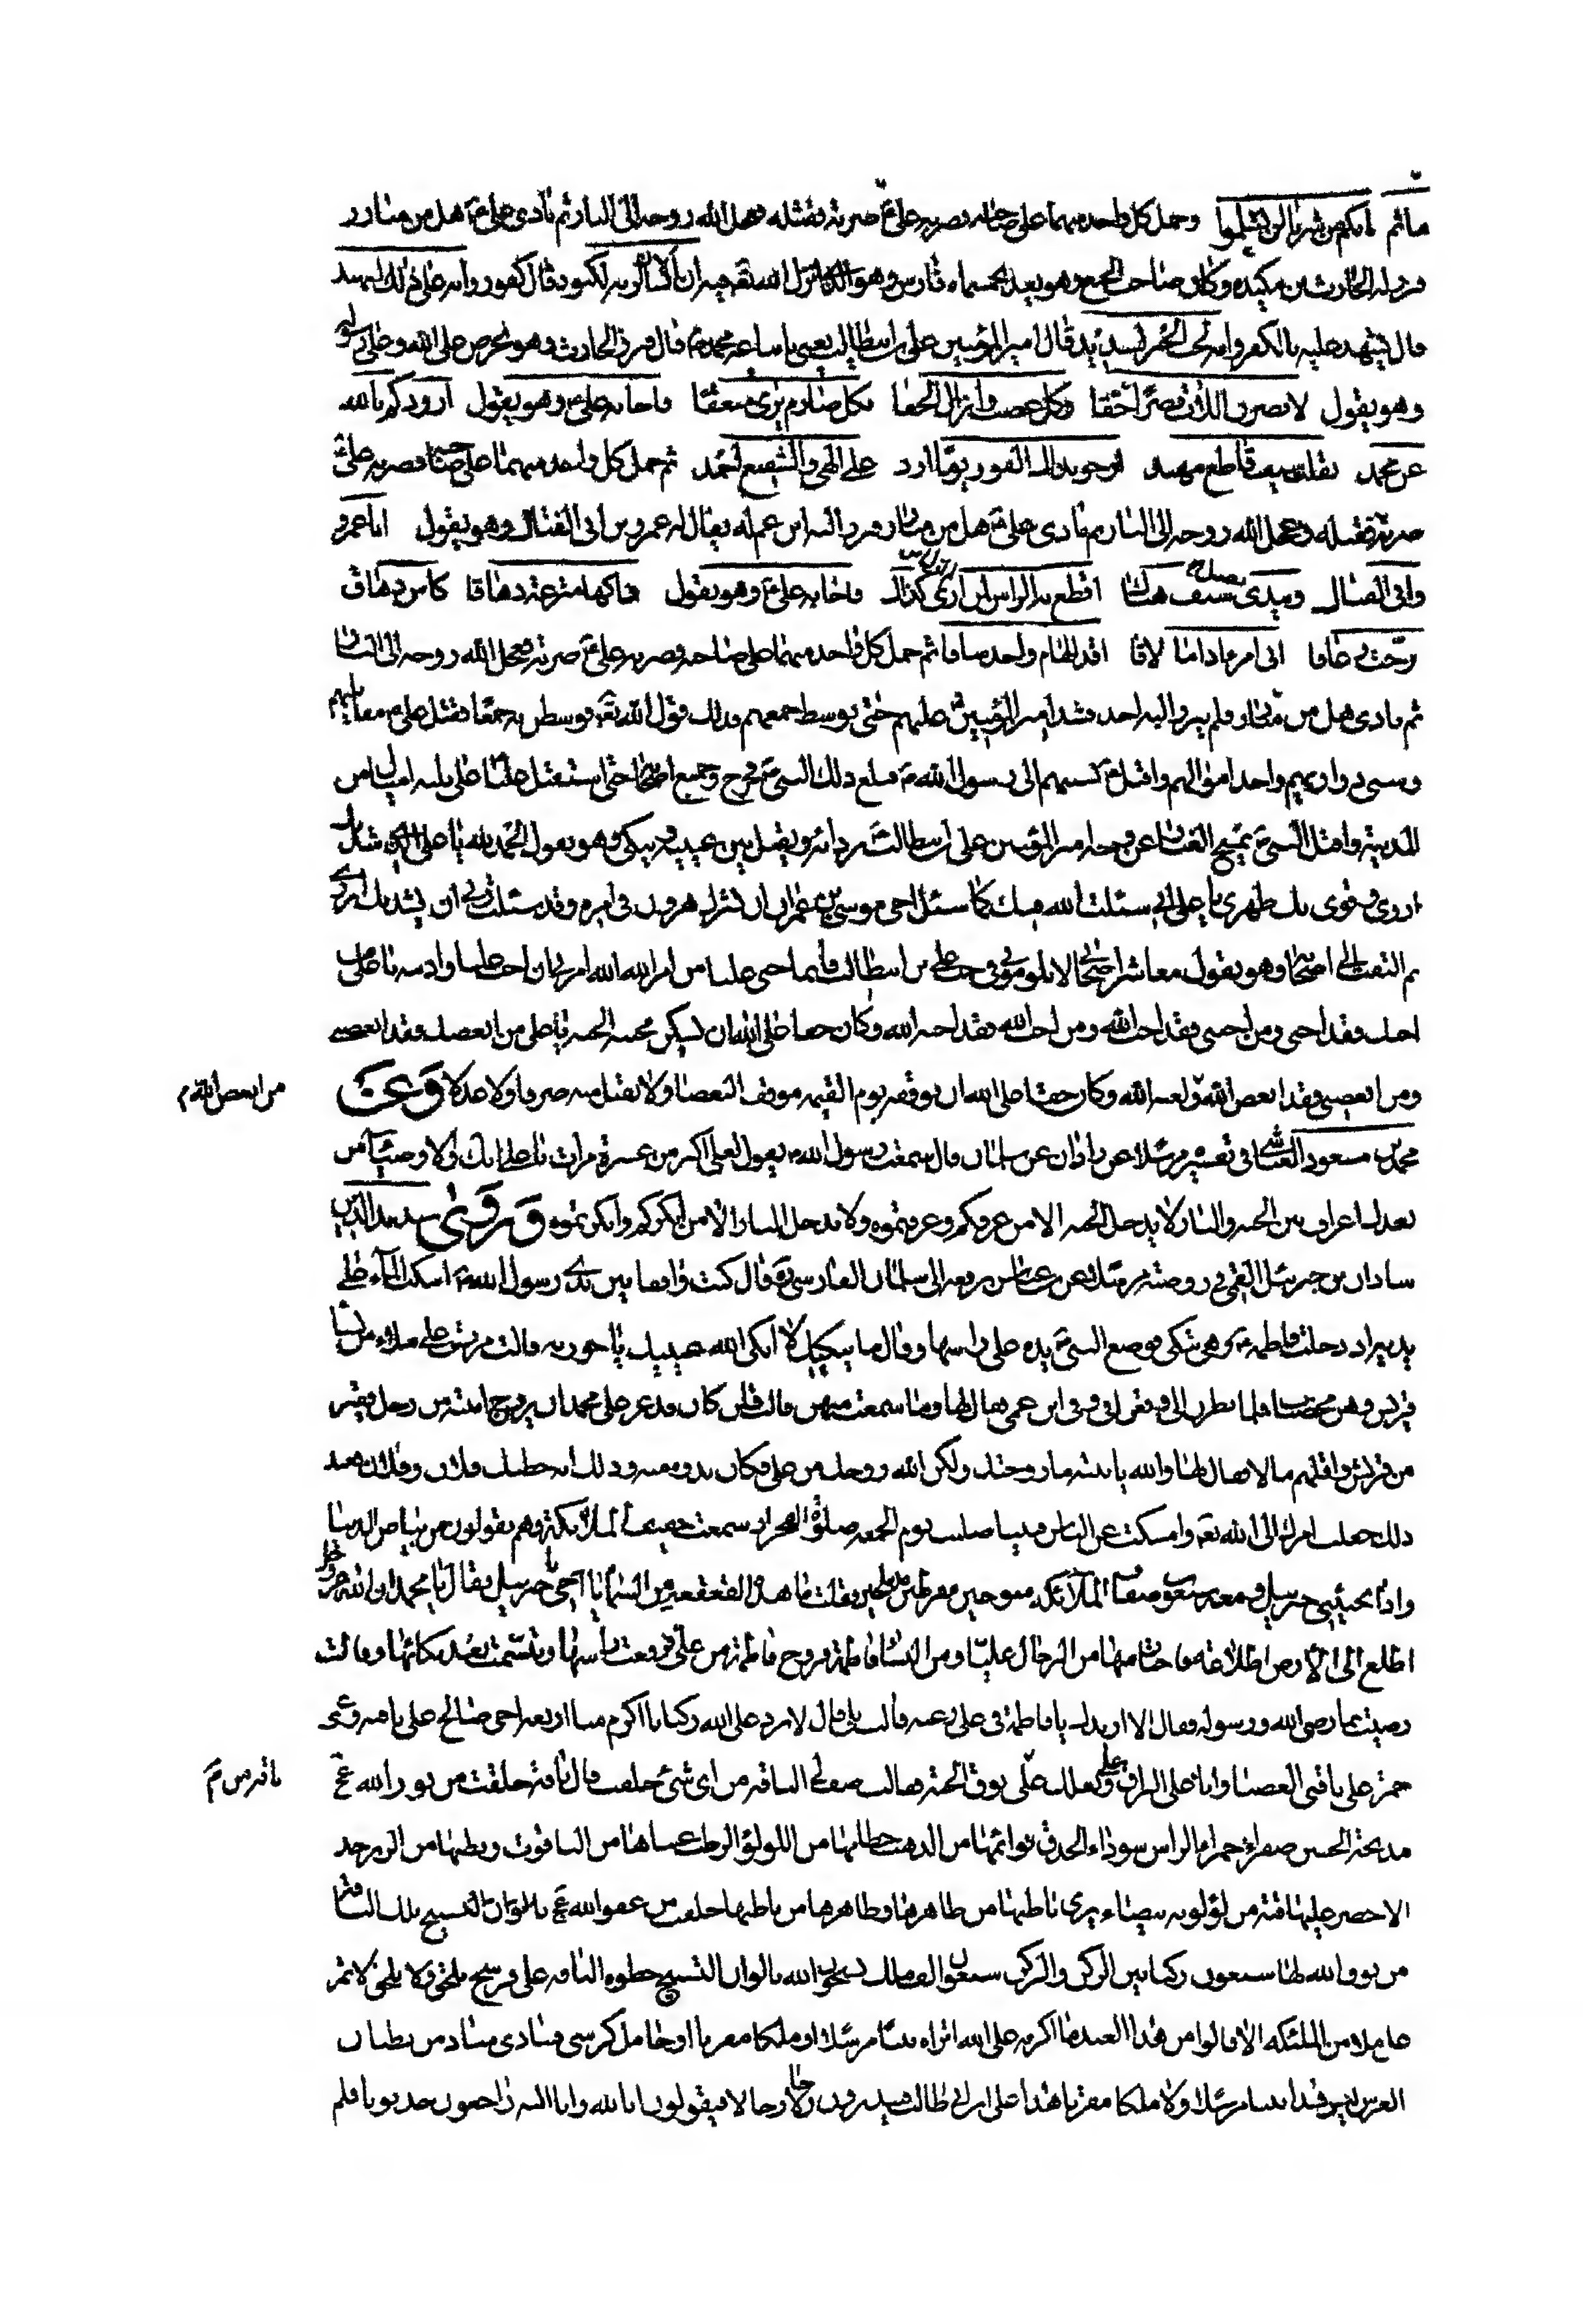 مااثم فانكم من شرنا لن تسلموا وحمل كل واحد منهما على صاحبه فضربه على ع ضربة فقتله وعجل الله روحه الى النار ثم نادى على ع هل من مبارز
فبرز اليه الحارث بن مكيدة وكان صاحب الجمع وهو يعد بخمسماه فارس وهو الذى انزل الله تع فيه ان الانسان لربه لكنود قال كفور وانه على ذلك لشهيد
قال شهيد عليه بالكفر وانه لحب الخير لشديد قال امير المؤمنين على بن ابيطالب يعنى باتباعه محمدا ص قال فبرز الحارث وهو يحرص على الله وعلى رسوله
وهو يقول لانصرن اللات نصرا حقا بكل عضب وازال الحلقا بكل صارم يرى منعقا فاجابه على ع وهو يقول اذودكم بالله
عن محمد بقلب سيف قاطع مهند ارجو بذاك الفوز يوما ارد على الهى والشفيع احمد ثم حمل كل واحد منهما على صاحبه فضربه على ع
ضربة فقتله وعجل الله روحه الى النار ثم نادى على ع هل من مبارز فبرز اليه ابن عم له يقال له عمرو بن ابى الفتال وهو يقول انا عمرو
وابى الفتال وبيدى نصل سيف هتاك اقطع به الراس لمن ارى كذاك فاجابه على ع وهو يقول هاكها مترعة دهاقا كاس دهاق
مزجت زعاقا انى امرء اذا ما لاقا اقد الهام واجد ساقا ثم حمل كل واحد منهما على صاحبه فضربه على ع ضربة فعجل الله روحه الى النار
ثم نادى هل من مبارز فلم يبرز اليه احد فشد امير المؤمنين ع عليهم حتى توسط جمعهم فذلك قول الله تع فوسطن به جمعا فقتل على ع مقاتليهم
وسبى ذراريهم واخذ اموالهم واقبل ع بسبيهم الى رسول الله ص فبلغ ذلك النبى ص فخرج وجميع اصحابه حتى استقبل عليا على ثلثة اميال من
المدينة واقبل النبى ص يمسح الغبار عن وجه امير المؤمنين على بن ابيطالب ع بردائه ويقبل بين عينيه ويبكى وهو يقول الحمد لله يا على الذى شد بك
ازرى وقوى بك ظهرى يا على اننى سئلت الله فيك كما سئل اخى موسى بن عمران ان يشرك هرون فى امره وقد سئلت ربى ان يشد بك ازرى
ثم التفت الى اصحابه وهو يقول معاشر اصحابى لا تلومونى فى حب على بن ابيطالب فانما حبى عليا من امر الله الله امرنى ان احب عليا وادنيه يا على من
احبك فقد احبنى ومن احبنى فقد احب الله ومن احب الله فقد احبه الله وكان حقا على الله ان يسكن محبيه الجنة يا على من ابغضك فقد ابغضنى
ومن ابغضنى فقد ابغض الله ولعنه الله وكان حقا على الله ان يوقفه يوم القيمه موقف البغضا ولا يقبل منه صرفا ولا عدلا وعن
من ابغض الله م
محمد بن مسعود العياشى فى تفسيره مرسلا عن زاذان عن سلمان قال سمعت رسول الله ص يقول لعلى اكثر من عشرة مرات يا على انك والاوصياء من
بعدك اعراف بين الجنه والنار لا يدخل الجنه الا من عرفكم وعرفتموه ولا يدخل النار الا من انكركم وانكرتموه وروى سديد الدين
شاذان بن جبرئيل القمى فى روضته مرسلا عن ابن عباس يرفعه الى سلمان الفارسى ره قال كنت واقفا بين يدى رسول الله ص اسكب الماء على
يديه اذ دخلت فاطمه ع وهى تبكى فوضع النبى ص يده على راسها وقال ما يبكيك لا ابكى الله عينيك يا حوريه قالت مررت على ملاء من نساء
قريش وهن مخضبات فلما نظرن الى وقعن فى وفى ابن عمى فقال لها وما سمعت منهن قالت قلن كان قد عز على محمد ان يزوج ابنته من رجل فقير
من قريش واقلهم مالا فقال لها والله يا بنيه ما زوجتك ولكن الله زوجك من على فكان بدوه منه وذلك انه خطبك فلان وفلان فعند
ذلك جعلت امرك الى الله تع وامسكت عن الناس فبينا صليت يوم الجمعه صلوة الفجر اذ سمعت حفيف الملائكة وهم يقولون من
واذا بحبيبى جبرئيل ومعه سبعون صفا من الملائكه متوجين مقرطين مدملجين فقلت ما هذه القعقعة من السماء يا اخى جبرئيل فقال يا محمد ان الله عز وجل
اطلع الى الارض اطلاعه فاختار منها من الرجال عليا ومن النساء فاطمة فزوج فاطمة من على فرفعت راسها وتبسمت بعد بكائها وقالت
رضيت بما رضى الله ورسوله فقال الا ازيدك يا فاطمة فى على رغبه قالت بلى قال لا يرد على الله ركبانا اكرم منا اربعه اخى صالح على ناقته وعمى
حمزة على ناقتى العضبا وانا على البراق وبعلك على بن ابيطالب على ناقه من نوق الجنة فقالت صف لى الناقه من اى شئ خلقت قال ناقة خلقت من نور الله عز
ناقه من م
مدبجة الجنبين صفراء حمراء الراس سوداء الحدق قوائمها من الذهب خطامها من اللولؤ الرطب عيناها من الياقوت وبطنها من الزبرجد
الاخضر عليها قبة من لؤلؤه بيضاء يرى باطنها من ظاهرها وظاهرها من باطنها خلقت من عفو الله عز تلك الناقة
من نوق الله لها سبعون ركنا بين الركن والركن سبعون الف ملك يسبحون الله بالوان التسبيح خطوه الناقه على فرسخ تلحق ولا يلحق لا تمر
على ملاء من الملئكه الا قالوا من هذا العبد ما اكرمه على الله اتراه نبيا مرسلا او ملكا مقربا او حامل كرسى فينادى مناد من بطنان
العرش ليس هذا نبيا مرسلا ولا ملكا مقربا هذا على بن ابى طالب فيبدرون رجالا رجالا فيقولون انا لله وانا اليه راجعون حدثونا فلم